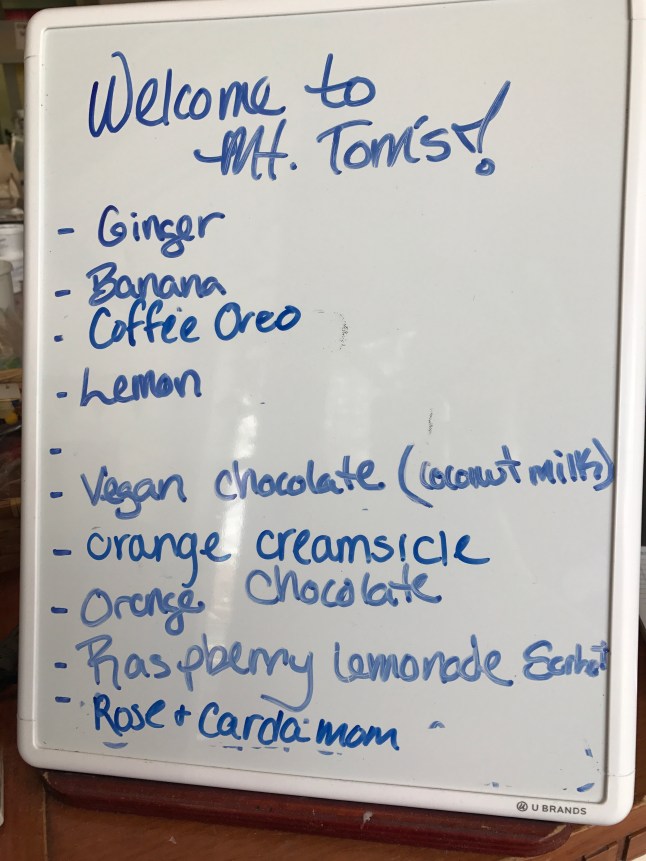 Welcome to
Mt. Tom's!
- Ginger
- Banana
- Coffee Oreo
- Lemon
-
- Vegan chocolate (coconut milk)
- orange creamsicle
- Orange Chocolate
- Raspberry Lemonade Sorbet
- Rose + Cardamom
U BRANDS